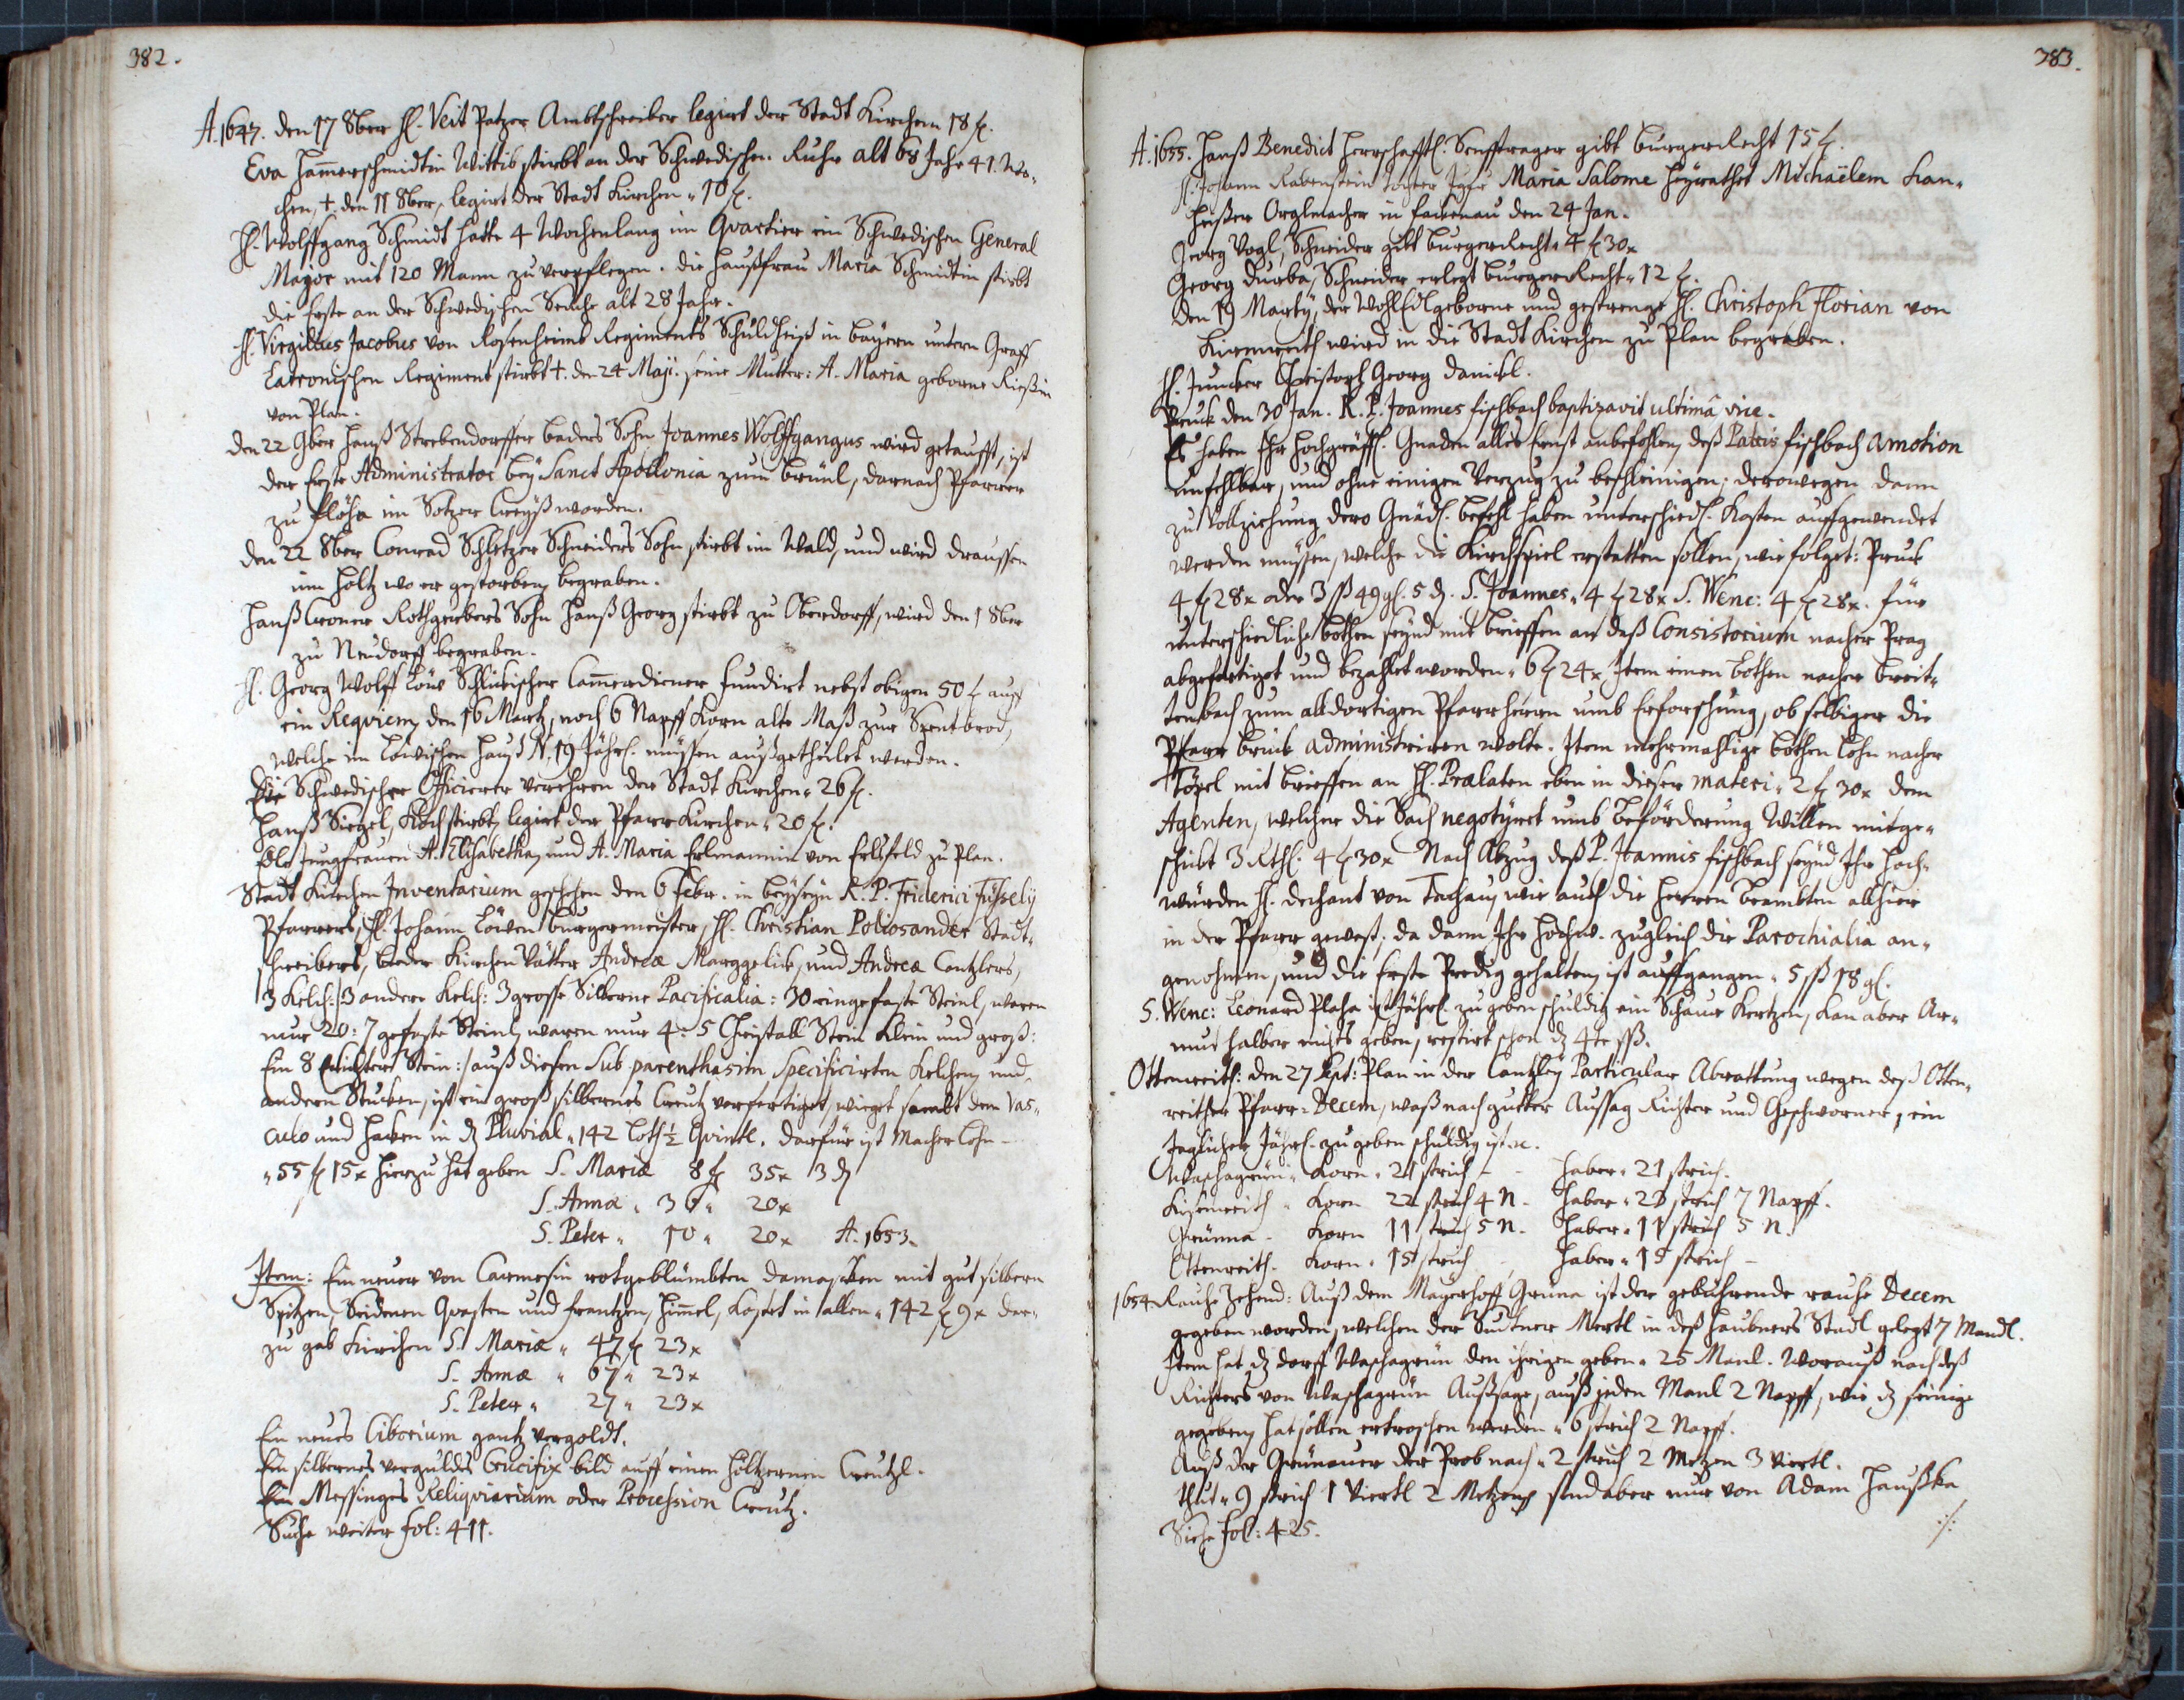 382.
A. 1647. den 17 8ber H. Veit Patzer Ambtschreiber legirt der Stadt Kirchen 18 f.
Eva Hammerschmidtin Wittib stirbt an der Schwedischen Ruhr alt 68 Jahr 41. Wo-
chen, +. den 11 8ber, legirt der Stadt Kirchen " 10 f.
H. Wolffgang Schmidt hatte 4 Wochenlang im Quartier ein Schwedischen General
Major mit 120 Mann zu verpflegen. die Haußfrau Maria Schmidtin stirbt
die Erste an der Schwedischen Seuche alt 28 Jahr.
H. Virgilius Jacobus von Rosenheimb Regiments Schuldheiß in Bayern untern Graff
Latronischen Regiment stirbt +. den 24 Maji. seine Mutter: A. Maria geborne Rießin
von Plan.
den 22 9ber Hanß Strebendorffer Baders Sohn Joannes Wolffgangus wird getaufft, ist
der Erste Administrator bey Sanct Apollonia zum Brünl, darnach Pfarrer
zu Flöha im Sotzer Creyß worden.
den 22 8ber Conrad Schletzer Schneiders Sohn stirbt im Wald, und wird draussen
im Holtz wo er gestorben, begraben.
Hanß Croner Rothgerbers Sohn Hanß Georg stirbt zu Oberdorff, wird den 1 8ber
zu Neudorff begraben.
H. Georg Wolff Löw Schlickischer Cammerdiener fundirt nebst obigen 50 f auff
ein Requiem, den 16 Martz, noch 6 Napff Korn alte Maß zur Spentbrod,
welche im Löwischen Hauß N. 19 Jährl. müssen außgetheilet werden.
Die Schwedischer Officierer verehren der Stadt Kirchen " 26 f.
Hanß Siegel, Koch stirbt, legirt der Pfarr Kirchen " 20 f.
Edle Jungfrauen A. Elisabetha, und A. Maria Erlmannin von Erlsfeld zu Plan.
Stadt Kirchen Inventarium geschehen den 6 Febr. in beyseyn R. P. Friderici Füssely
Pfarrers, H. Johann Löwen Burgermeister, H. Christian Poliosander Stadt-
schreibers, beder Kirchen Vätter Andreæ Marggelick, und Andreæ Cantzlers,
3 Kelch: /: 3 andere Kelch: 3 grosse Silberne Pacificalia: 30 eingefaste Steinl, waren
nur 20: 7 gefaste Steinl, waren nur 4: 5 Christall Stein klein und groß:
Ein 8 Stein :/ auß diesen sub parenthesim specificirten Kelchen, und
andern Stucken, ist ein groß silbernes Creutz verfertiget, wieget sambt dem Vas-
culo und Haken in dz Pluvial " 142 Loth ½ Quintl. darfür ist Macher Lohn -
" 55 f 15 x hierzu hat geben S. Mariæ 8 f 35 x 3 ₰
S. Annæ " 36 " 20 x
S. Peter " 10 " 20 x A. 1653.
Item: Ein neuer von Carmesin rotgeblümbten damascken mit gut silbern
Spitzen, Seidenen Quasten und Frantzen, Himmel, kostet in allen " 142 f 9 x dar-
zu gab Kirchen S. Mariæ " 47 f 23 x
S. Annæ " 67 " 23 x
S. Peter " 27 " 23 x
Ein neues Ciborium gantz vergoldt.
Ein silbernes verguldts Crucifix bild auff einen höltzernen Creutzl.
Ein Messinges Reliquiarium oder Procession Creutz.
Suche weiter fol: 411.
383.
A. 1655. Hanß Benedict Herrschafftl. Senfftrager gibt Burgerrecht 15 f.
H. Johann Rabenstein Tochter Jgfr Maria Salome Heyrathet Michaëlem Han-
heußer Orglmacher in Falckenau den 24 Jan.
Georg Vogl, Schneider gibt Burgerrecht " 4 f 30 x
Georg Durba, Schneider erlegt Burgerrecht " 12 f.
den 19 Martij, der Wohl Edlgeborne und gestrenge H. Christoph Florian von
Kirmreith wird in die Stadt Kirchen zu Plan begraben.
H. Juncker Christoph Georg Daniel.
Pruck den 30 Jan. R. P. Joannes Fischbach baptizavit ultimâ vice.
Es haben Ihr Hochgräffl. Gnaden alles Ernst anbefohlen, deß Patris Fischbach amotion
unfehlbar, und ohne einigen Verzug zu beschleinigen: derowegen dann
zu Vollziehung dero Gnädl. Befehl haben unterschiedl. Kosten auffgewendet
werden müssen, welche die Kirchspiel erstatten sollen, wie folget: Pruck
4 f 28 x oder 3 ß 49 gl. 5 ₰. S. Joannes " 4 f 28 x S. Wenc: 4 f 28 x. für
unterschiedliche Bothen seynd mit brieffen an daß Consistorium nacher Prag
abgefertiget und bezahlet worden " 6 f 24 x, Item einen Bothen nacher Breit-
tenbach zum alldortigen Pfarrherrn umb Erforschung, ob selbiger die
Pfarr Bruck administriren wolte. Item mehrmahlige Bothen Lohn nacher
Töpel mit brieffen an H. Prælaten eben in dieser materi " 2 f 30 x dem
Agenten, welcher die Sach negotyret umb Beförderung Willen mitge-
schickt 3 Rthl. 4 f 30 x Nach Abzug deß P. Joannis Fischbach seynd Ihr Hoch-
würden H. dechant von Tachau, wie auch die Herren Beambten allhier
in der Pfarr gewest: da dann Ihr Hochw. zugleich die Parochialia an-
genohmen, und die Erste Predig gehalten, ist auffgangen " 5 ß 18 gl.
S. Wenc: Leonard Plaha ist Jährl. zu geben schuldig ein Schaur Kertzen, kan aber Ar-
mut halber nichts geben, restirt schon dz 4te ß.
Ottenreith: den 27 Sept: Plan in der Cantzley Particular Abrattung wegen deß Otten-
reither Pfarr-Decem, waß nach gutter Aussag Richter und Geschworner, ein
Jeglicher Jährl. zu geben schuldig ist. etc.
Waschagrün " Korn " 21 strich - - Haber " 21 strich.
Kiesenreith " Korn 22 strich 4 N. - Haber " 23 strich 7 Napff.
Grünna - Korn 11 strich 5 N. Haber " 11 strich 5 N.
Ottenreith. Korn " 15 strich - Haber " 15 strich -
1654 Rauhe Zehend: Auß dem Mayerhoff Grüna ist der gebührende rauhe Decem
gegeben worden, welchen der Suttner Mertl in deß Haubners Stadl gelegt 7 Mandl.
Item hat dz dorff Waschagrün den ihrigen geben " 25 Manl. Worauß nach deß
Richters von Waschagrün Aussage, auß jeden Manl 2 Napff, wie dz seinige
gegeben, hat sollen ertroschen werden " 6 strich 2 Napff.
Auß der Grünauer der Prob nach " 2 strich 2 Metzen 3 Viertl.
thut " 9 strich 1 Viertl 2 Metzen, sind aber nur von Adam Haußka
Siehe Fol: 425.
·/·